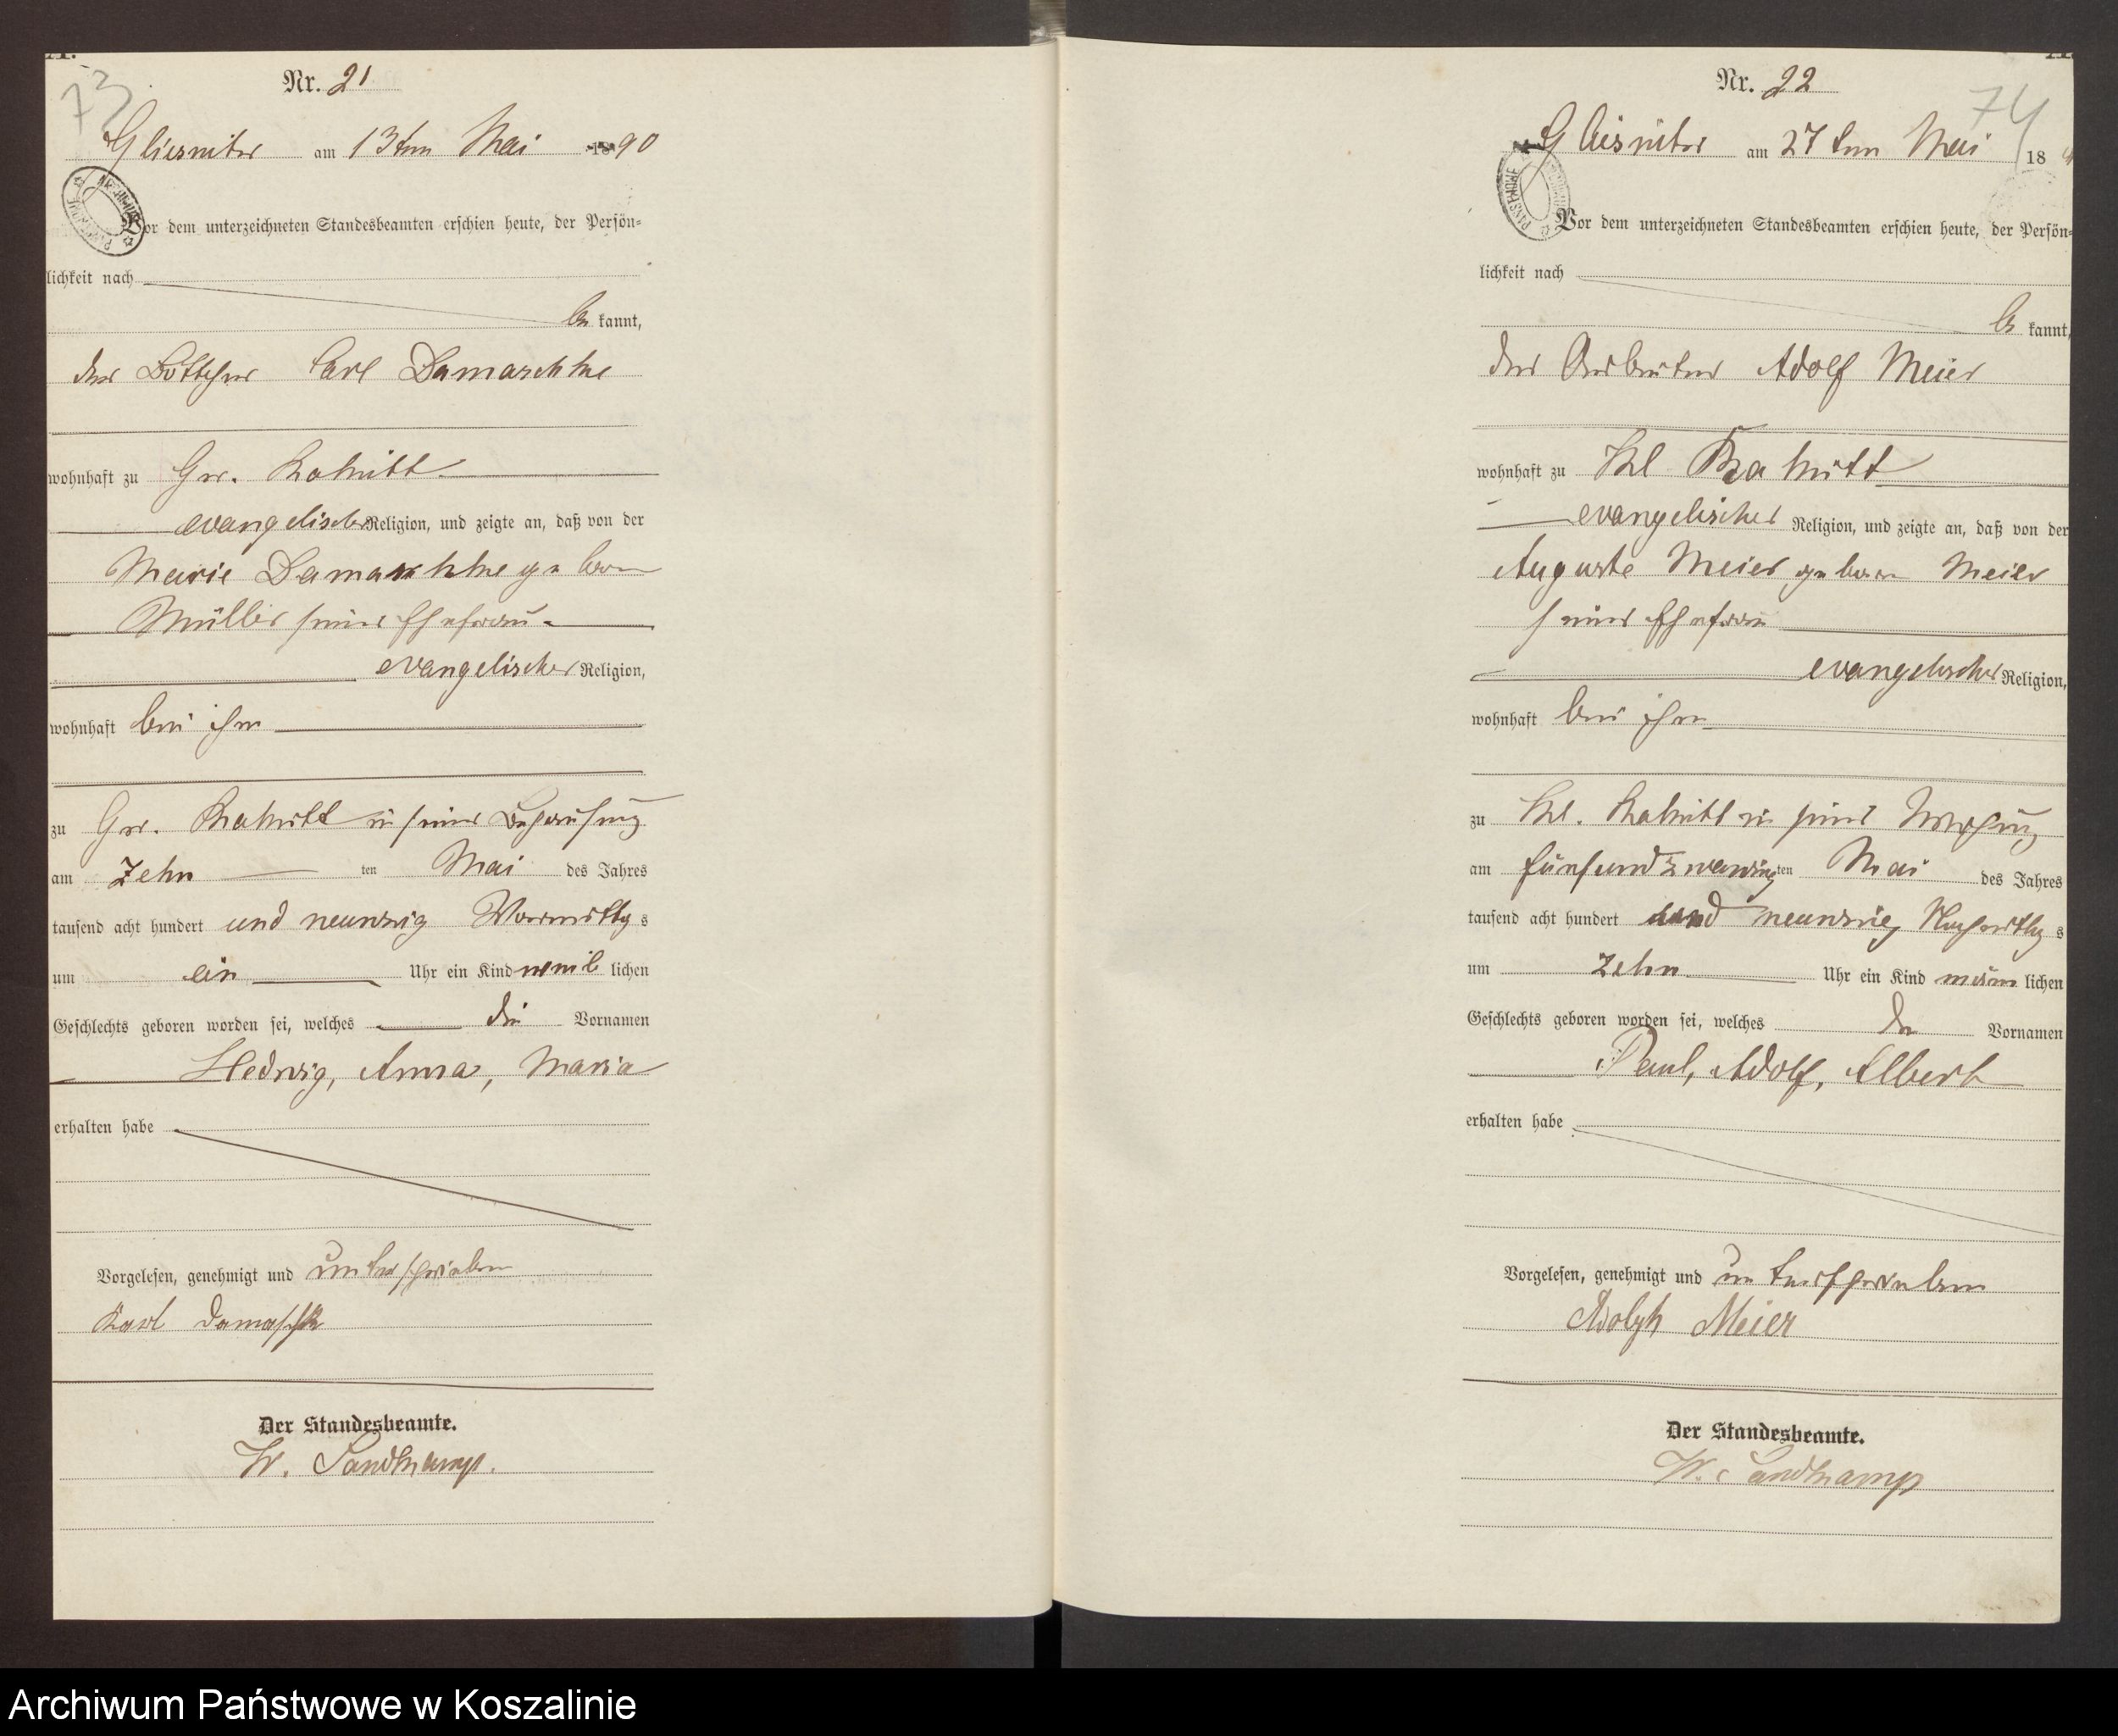 73
Nr. 21
Gliesnitz am 13ten Mai 1890
Vor dem unterzeichneten Standesbeamten erschien heute, der Persön=
lichkeit nach
be kannt,
der Böttcher Carl Damaschke
wohnhaft zu Gr. Rakitt
evangelischer Religion, und zeigte an, daß von der
Marie Damaschke geboren
Müller seiner Ehefrau
evangelischer Religion,
wohnhaft bei ihm
zu Gr. Rakitt in seiner Behausung
am Zehn ten Mai des Jahres
tausend acht hundert und neunzig Vormittag s
um ein Uhr ein Kind weib lichen
Geschlechts geboren worden sei, welches die Vornamen
Hedwig, Anna, Maria
erhalten habe
Vorgelesen, genehmigt und unterschrieben
Karl Damaschk
Der Standesbeamte.
W. Sandkamp.
74
Nr. 22
Gliesnitz am 27ten Mai 18
Vor dem unterzeichneten Standesbeamten erschien heute, der Persön=
lichkeit nach
be kannt,
der Arbeiter Adolf Meier
wohnhaft zu Kl Rakitt
evangelischer Religion, und zeigte an, daß von der
Auguste Meier geboren Meier
seiner Ehefrau
evangelischer Religion,
wohnhaft bei ihm
zu Kl. Rakitt in seiner Wohnung
am fünfundzwanzig ten Mai des Jahres
tausend acht hundert und neunzig Nachmittag s
um Zehn Uhr ein Kind männ lichen
Geschlechts geboren worden sei, welches die Vornamen
Paul, Adolf, Albert
erhalten habe
Vorgelesen, genehmigt und unterschrieben
Adolph Meier
Der Standesbeamte.
W. Sandkamp
Archiwum Państwowe w Koszalinie